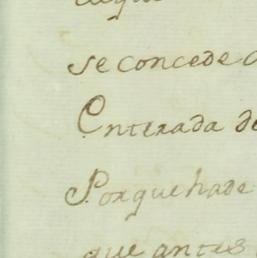 se concede
Enterada de
Porque ha de
que antes